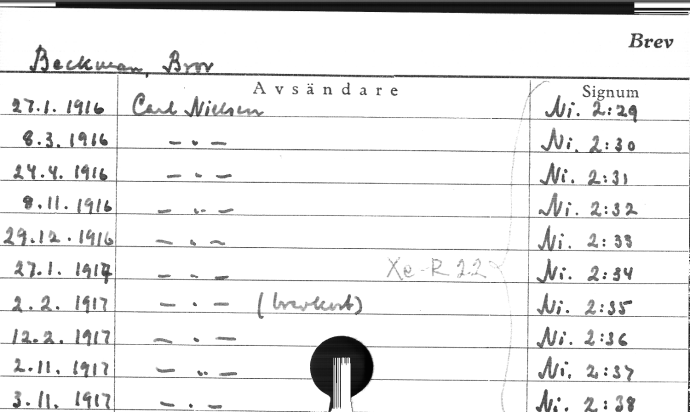 Brev
Beckman, Bror
Avsändare Signum
27.1. 1916 Carl Nielsen Ni. 2:29
8.3. 1916 — " — Ni. 2:30
24.4. 1916 — " — Ni. 2:31
8.11. 1916 — " — Ni. 2:32
29.12. 1916 — " — Ni. 2:33
27.1. 1917 — " — Xe-R 22 Ni. 2:34
2.2. 1917 — " — (brevkort) Ni. 2:35
12.2. 1917 — " — Ni. 2:36
2.11. 1917 — " — Ni. 2:37
3.11. 1917 — " — Ni. 2:38